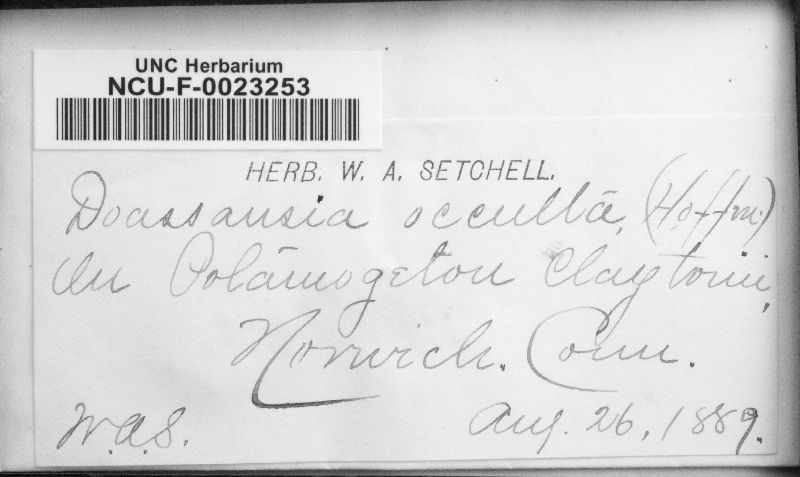 UNC Herbarium
NCU-F-0023253
HERB. W. A. SETCHELL.
Doassansia occulta, (Hoffm.)
On Potamogeton Claytonii,
Norwich. Conn.
W.A.S. Aug. 26, 1889.